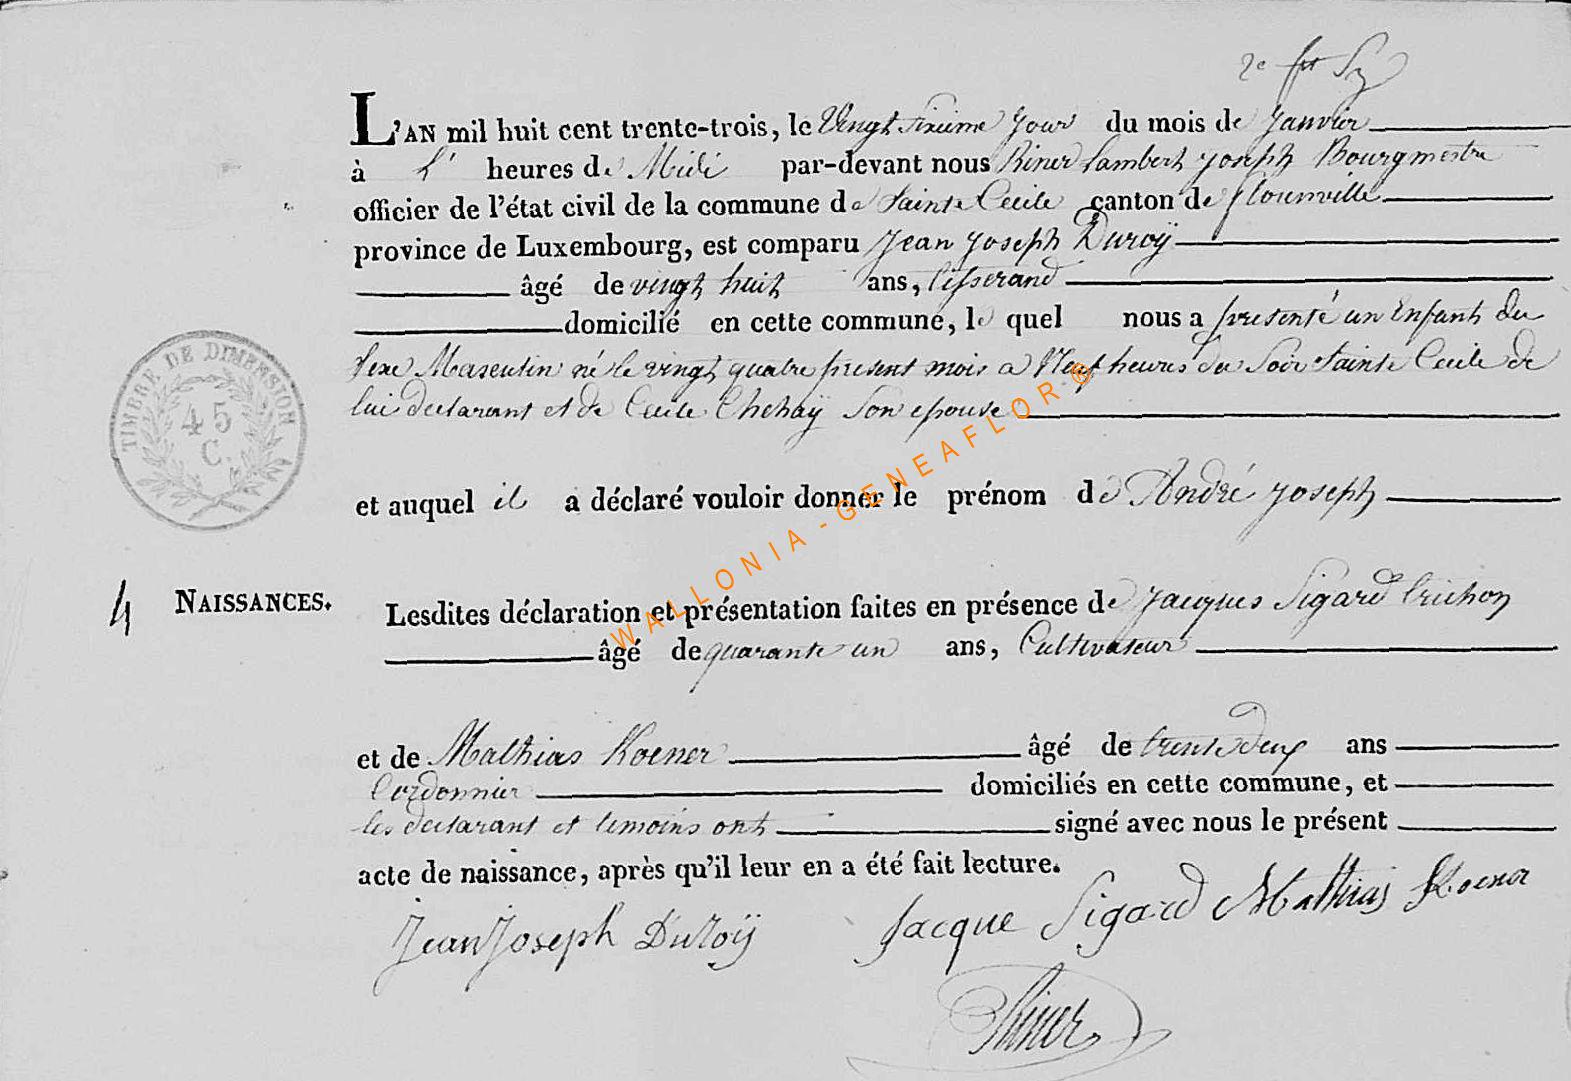 2e fst Sz
L'AN mil huit cent trente-trois, le Vingt sixieme jour du mois de Janvier
à L' heures de Midi par-devant nous Riner Lambert Joseph Bourgmestre
officier de l'état civil de la commune de Sainte Cecile canton de florenville
province de Luxembourg, est comparu Jean Joseph Duroÿ
âgé de vingt huit ans, tisserand
domicilié en cette commune, le quel nous a presenté un Enfant du
Sexe Masculin né le vingt quatre present mois a Neuf heures du Soir Sainte Cecile de
lui declarant et de Cecile Chehaÿ Son epouse
et auquel il a déclaré vouloir donner le prénom de André Joseph
4 NAISSANCES.
TIMBRE DE DIMENSION
45
C.
Lesdites déclaration et présentation faites en présence de Jacques Sigard
âgé de quarante un ans, Cultivateur
et de Mathias Koener âgé de trente deux ans
Cordonnier domiciliés en cette commune, et
les declarant et temoins ont signé avec nous le présent
acte de naissance, après qu'il leur en a été fait lecture.
Jean Joseph Duroÿ Jacque Sigard Mathias Koener
Riner
WALLONIA - GENEAFLOR®